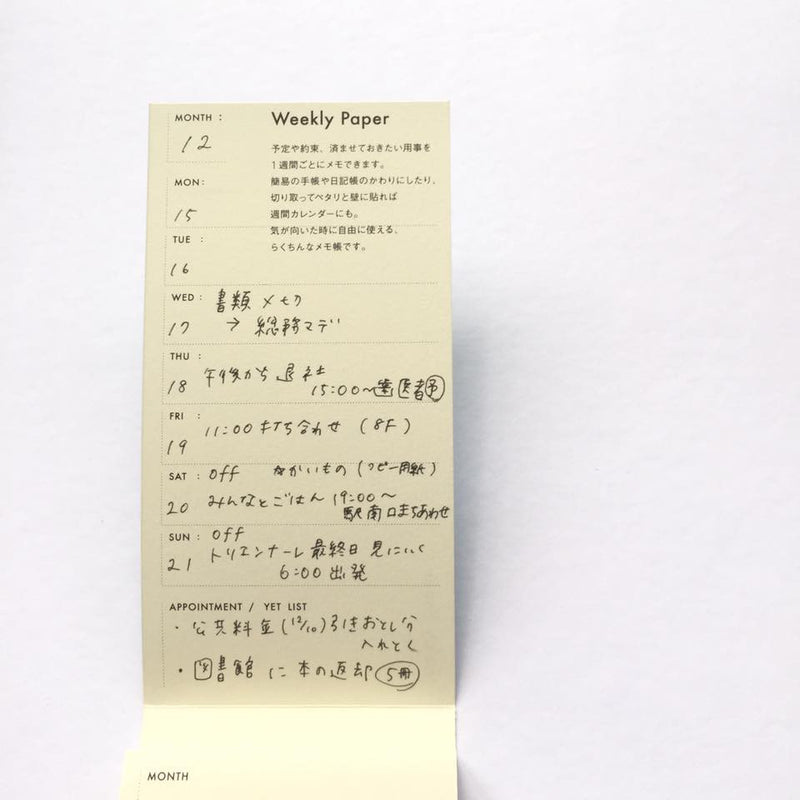 MONTH :
12
Weekly Paper
予定や約束、済ませておきたい用事を
1週間ごとにメモできます。
簡易の手帳や日記帳のかわりにしたり、
切り取ってペタリと壁に貼れば
週間カレンダーにも。
気が向いた時に自由に使える、
らくちんなメモ帳です。
MON:
15
TUE :
16
WED : 書類メモリ
17 → 総務マデ
THU :
18 午後から退社
15:00〜歯医者予
FRI :
19 11:00 打ち合わせ (8F)
SAT : off かいもの (コピー用紙)
20 みんなとごはん 19:00〜
駅南口まちあわせ
SUN : off
21 トリエンナーレ最終日 見にいく
6:00 出発
APPOINTMENT / YET LIST
・公共料金 (12/10) 引きおとし分
入れとく
・図書館に本の返却 5冊
MONTH